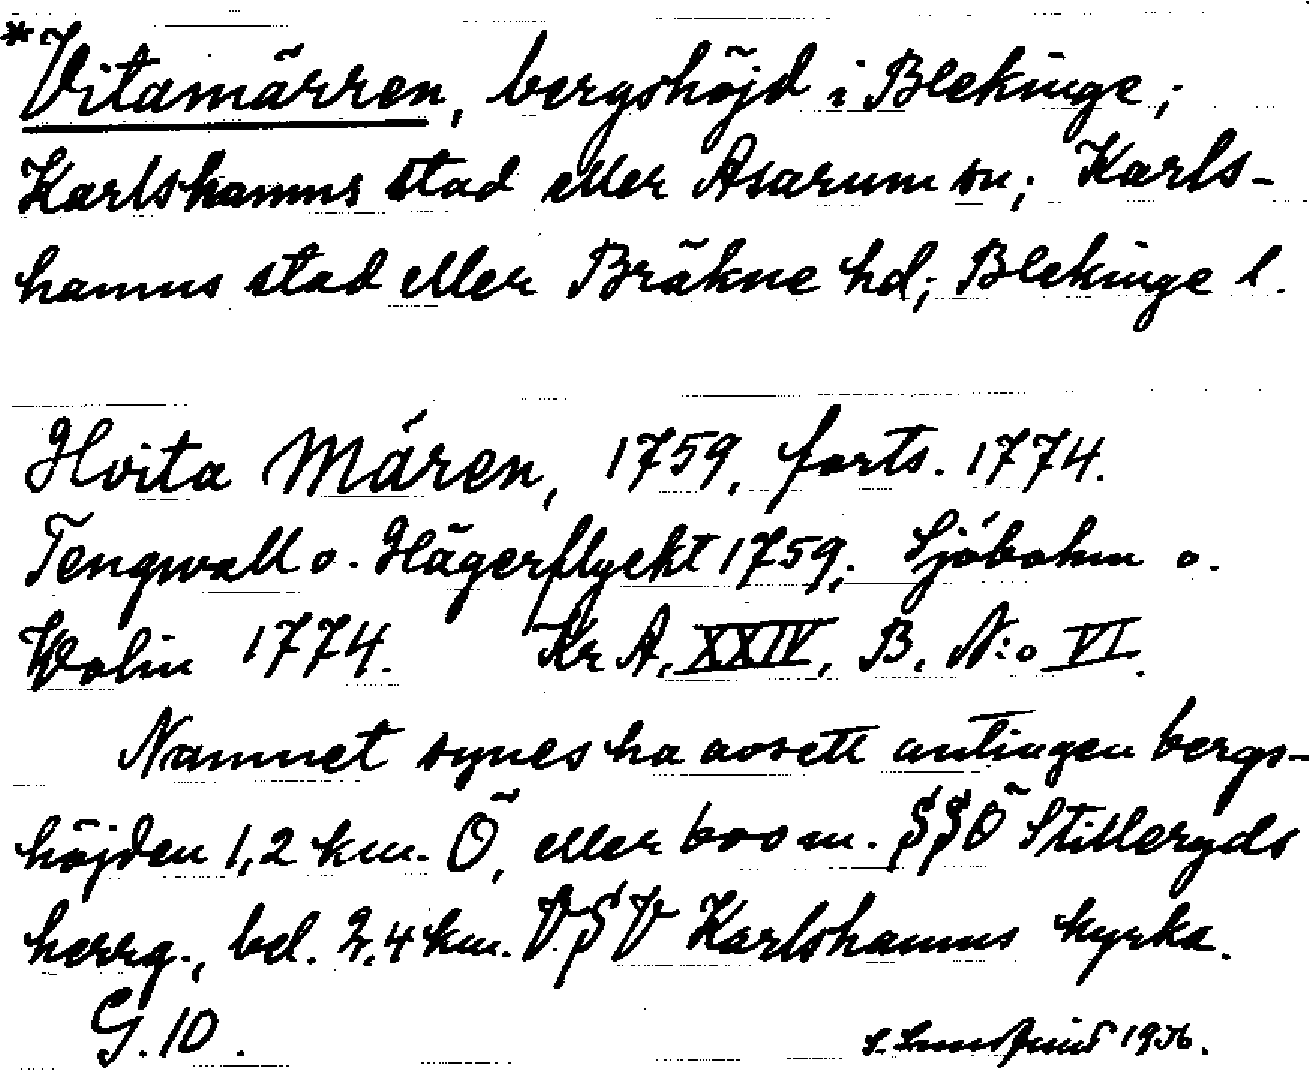 *Vitamärren, bergshöjd i Blekinge;
Karlshamns stad eller Asarum sn; Karls-
hamns stad eller Bräkne hd; Blekinge l.
Hvita Mären, 1759, forts. 1774.
Tengwall o. Hägerflycht 1759; Sjöbohm o.
Wolin 1774. Kr A, XXIV, B, N:o VI.
Namnet synes ha avsett antingen bergs-
höjden 1,2 km. Ö, eller 600 m. SSÖ Stilleryds
herrg., bel. 2,4 km. VSV Karlshamns kyrka.
G. 10.
1956.